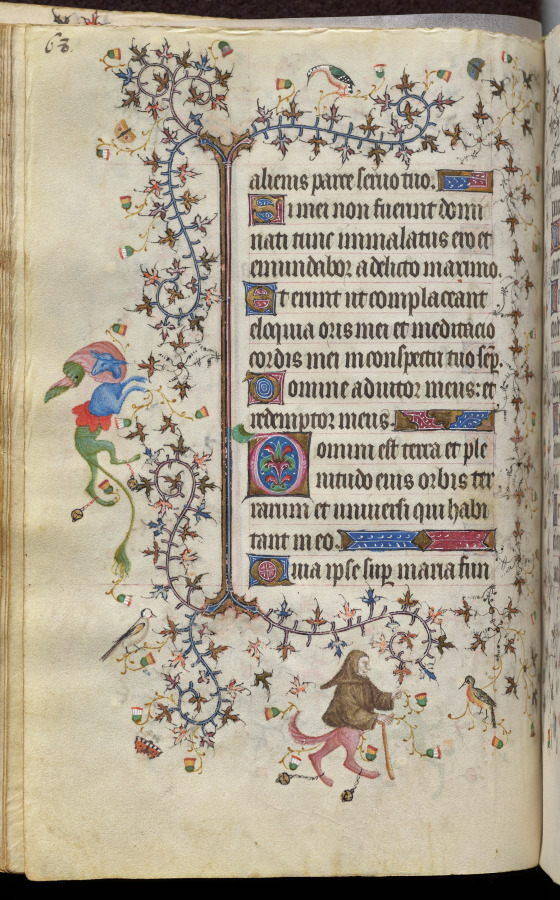 63
alienis parce servo tuo.
Si mei non fuerint domi
nati tunc immalatus ero et
emundabor a delicto maximo.
Et erunt ut complaceant
eloquia oris mei et meditacio
cordis mei in conspectu tuo sep
Domine adiutor meus: et
redemptor meus.
Domini est terra et ple
nitudo eius orbis ter
rarum et universi qui habi
tant in eo.
Quia ipse sup maria fun